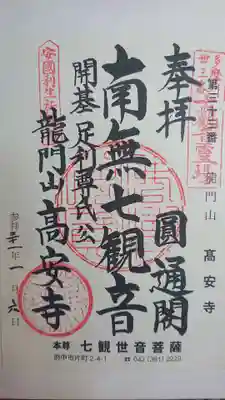 奉拝
第三十三番
龍門山
高安寺
圓通閣
南無七観音
開基足利尊氏公
安國利生
龍門山高安寺
参拝三十一年一月六日
本尊 七観世音菩薩
府中市片町2-4-1 ☎042(361)2229